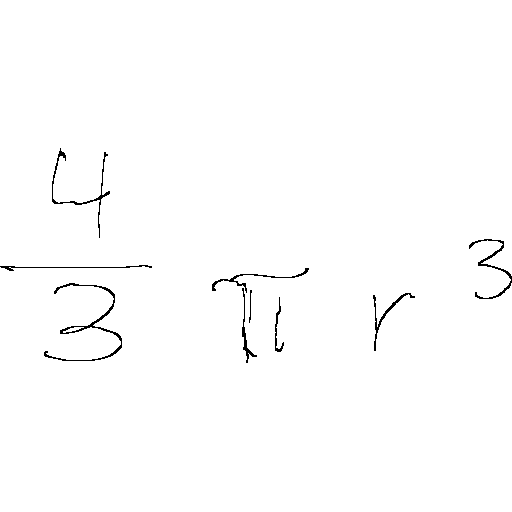 \frac{4}{3} \pi r^3